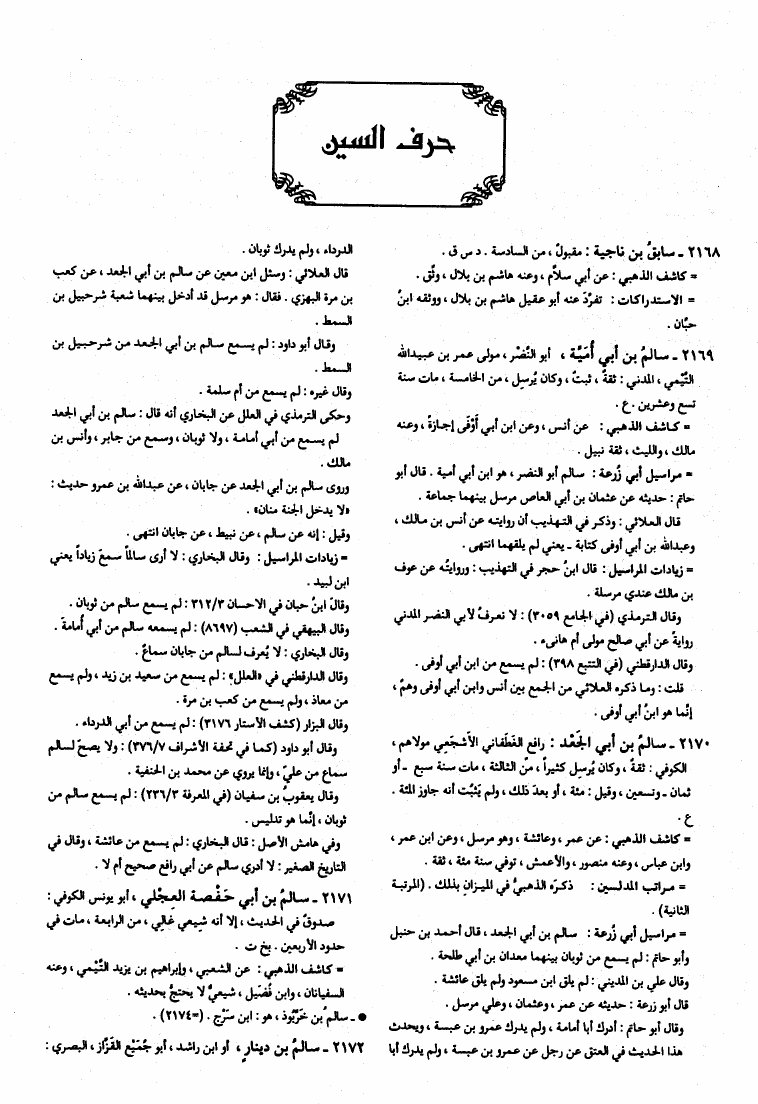 حرف السين
٢١٦٨ ـ سابقُ بن ناجية : مقبولٌ ، من السادسة . د س ق .
= كاشف الذهبي : عن أبي سلاَّم ، وعنه هاشم بن بلال ، وثِّق .
= الاستدراكات : تفرَّدَ عنه أبو عقيل هاشم بن بلال ، ووثقه ابنُ
حبَّان .
٢١٦٩ ـ سالمُ بن أبي أُمَيَّة ، أبو النَّضْر ، مولى عمر بن عبيدالله
التَّيْمي ، المدني : ثقةٌ ، ثبتٌ ، وكان يُرسِل ، من الخامسة ، مات سنة
تسع وعشرين . ع .
= كاشف الذهبي : عن أنس ، وعن ابن أبي أَوْفَى إجازةً ، وعنه
مالك ، والليث ، ثقة نبيل .
= مراسيل أبي زُرعة : سالم أبو النضر ، هو ابن أبي أمية . قال أبو
حاتم : حديثه عن عثمان بن أبي العاص مرسل بينهما جماعة .
قال العلائي : وذكر في التهذيب أن روايته عن أنس بن مالك ،
وعبدالله بن أبي أوفى كتابة ـ يعني لم يلقهما انتهى .
= زيادات المراسيل : قال ابنُ حجر في التهذيب : وروايتُه عن عوف
بن مالك عندي مرسلة .
وقال الترمذي (في الجامع ٣٠٥٩) : لا نعرفُ لأبي النضر المدني
روايةً عن أبي صالح مولى أم هانىء .
وقال الدارقطني (في التتبع ٣٩٨) : لم يسمع من ابن أبي أوفى .
قلت : وما ذكره العلائي من الجمع بين أنس وابن أبي أوفى وهمٌ ،
إنَّما هو ابنُ أبي أوفى .
٢١٧٠ ـ سالمُ بن أبي الجَعْد : رافع الغَطَفاني الأشجَعي مولاهم ،
الكوفي : ثقةٌ ، وكان يُرسِل كثيراً ، من الثالثة ، مات سنة سبع ـ أو
ثمان ـ وتسعين ، وقيل : مئة ، أو بعدَ ذلك ، ولم يَثْبُت أنه جاوز المئة .
ع .
= كاشف الذهبي : عن عمر ، وعائشة ، وهو مرسل ، وعن ابن عمر ،
وابن عباس ، وعنه منصور ، والأعمش ، توفي سنة مئة ، ثقة .
= مراتب المدلسين : ذكرَه الذهبيُّ في الميزان بذلك . (المرتبة
الثانية) .
= مراسيل أبي زُرعة : سالم بن أبي الجعد ، قال أحمد بن حنبل
وأبو حاتم : لم يسمع من ثوبان بينهما معدان بن أبي طلحة .
وقال علي بن المديني : لم يلق ابن مسعود ولم يلق عائشة .
قال أبو زرعة : حديثه عن عمر ، وعثمان ، وعلي مرسل .
وقال أبو حاتم : أدرك أبا أمامة ، ولم يدرك عمرو بن عبسة ، ويحدث
هذا الحديث في العتق عن رجل عن عمرو بن عبسة ، ولم يدرك أبا
الدرداء ، ولم يدرك ثوبان .
قال العلائي : وسئل ابن معين عن سالم بن أبي الجعد ، عن كعب
بن مرة البهزي . فقال : هو مرسل قد أدخل بينهما شعبة شرحبيل بن
السمط .
وقال أبو داود : لم يسمع سالم بن أبي الجعد من شرحبيل بن
السمط .
وقال غيره : لم يسمع من أم سلمة .
وحكى الترمذي في العلل عن البخاري أنه قال : سالم بن أبي الجعد
لم يسمع من أبي أمامة ، ولا ثوبان ، وسمع من جابر ، وأنس بن
مالك .
وروى سالم بن أبي الجعد عن جابان ، عن عبدالله بن عمرو حديث :
«لا يدخل الجنة منان» .
وقيل : إنه عن سالم ، عن نبيط ، عن جابان انتهى .
= زيادات المراسيل : وقال البخاري : لا أرى سالماً سمعَ زياداً يعني
ابن لبيد .
وقال ابنُ حبان في الاحسان ٣١٢/٣ : لم يسمع سالم من ثوبان .
وقال البيهقي في الشعب (٨٦٩٧) : لم يسمعه سالم من أبي أُمامةَ .
وقال البخاري : لا يُعرف لسالم من جابان سماعٌ .
وقال الدارقطني في «العلل» : لم يسمع من سعيد بن زيد ، ولم يسمع
من معاذ ، ولم يسمع من كعب بن مرة .
وقال البزار (كشف الأستار ٣١٧٦) : لم يسمع من أبي الدرداء .
وقال أبو داود (كما في تحفة الأشراف ٣٧٦/٧) : ولا يصحّ لسالم
سماع من عليّ ، وإنما يروي عن محمد بن الحنفية .
وقال يعقوبُ بن سفيان (في المعرفة ٢٣٦/٣) : لم يسمع سالم من
ثوبان ، إنَّما هو تدليس .
وفي هامش الأصل : قال البخاري : لم يسمع من عائشة ، وقال في
التاريخ الصغير : لا أدري سالم عن أبي رافع صحيح أم لا .
٢١٧١ ـ سالمُ بن أبي حَفْصة العِجْلي ، أبو يونس الكوفي :
صدوقٌ في الحديث ، إلا أنه شيعي غالي ، من الرابعة ، مات في
حدود الأربعين . بخ ت .
= كاشف الذهبي : عن الشعبي ، وإبراهيم بن يزيد التَّيْمي ، وعنه
السفيانان ، وابن فُضَيل ، شيعيٌّ لا يحتجُّ بحديثه .
● ـ سالمُ بن خَرَّبُوذ ، هو : ابن سَرْج . (=٢١٧٤) .
٢١٧٢ ـ سالمُ بن دينار ، أو ابن راشد ، أبو جُمَيْع القَزَّاز ، البصري :